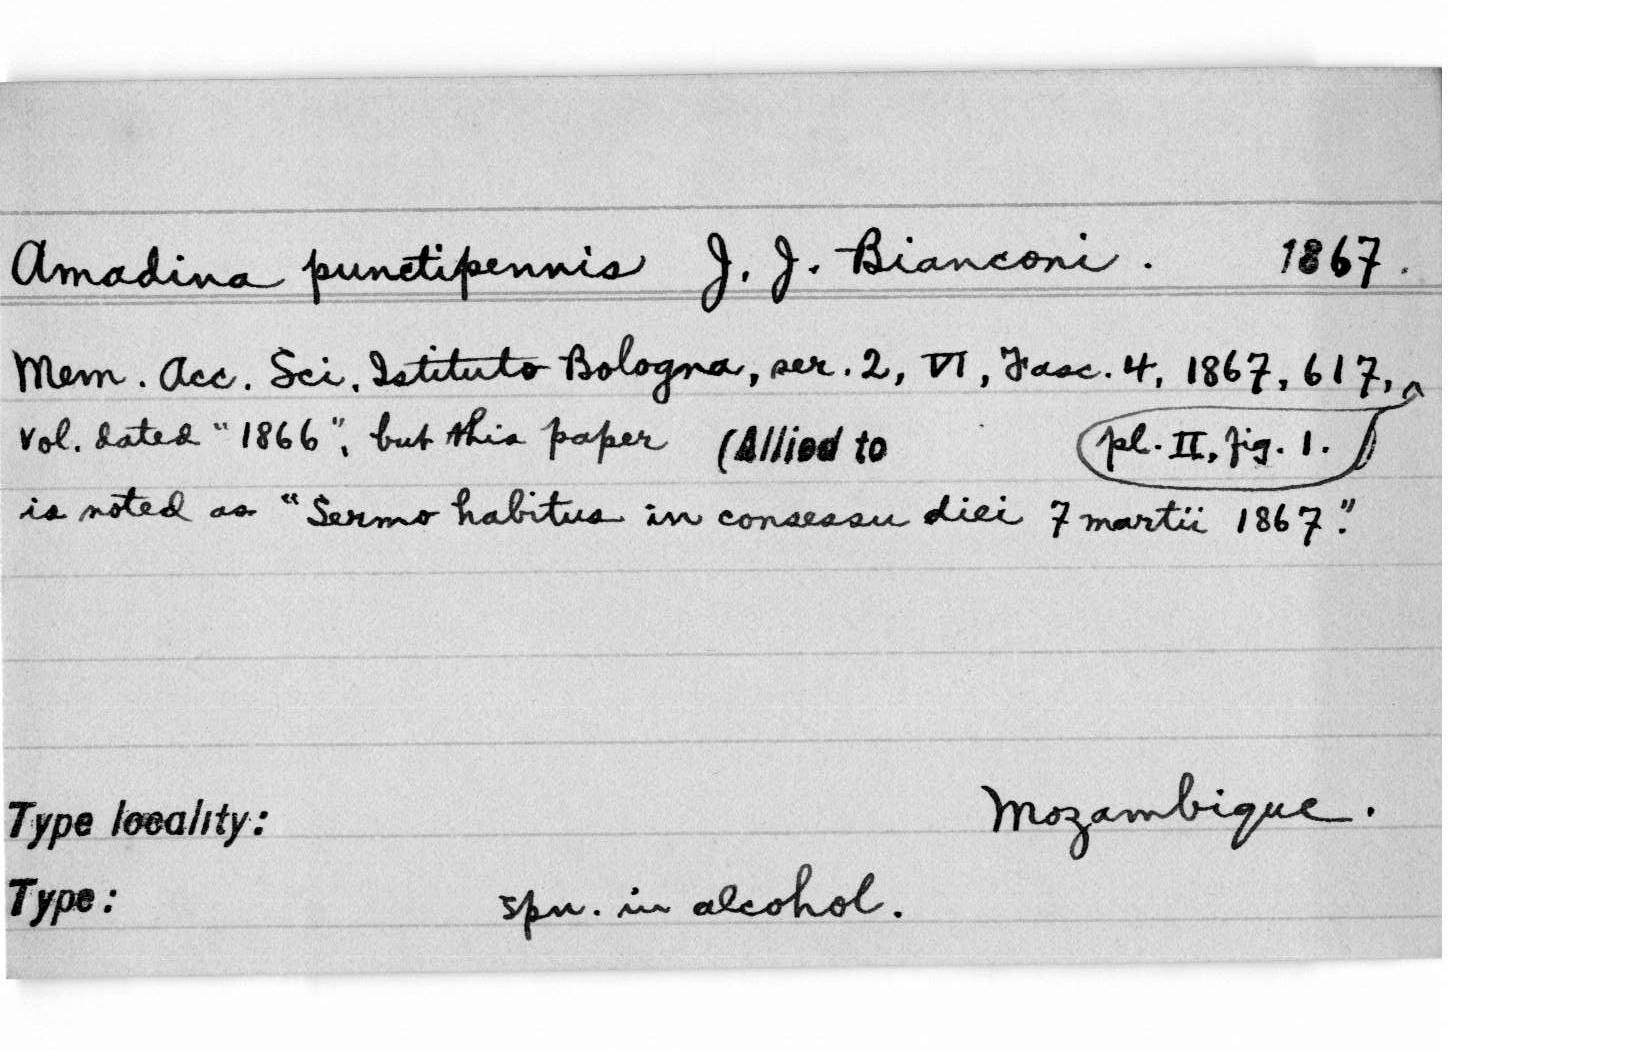 Amadina punctipennis J. J. Bianconi. 1867.
Mem. Acc. Sci. Istituto Bologna, ser. 2, VI, Fasc. 4, 1867, 617, ^
vol. dated "1866", but this paper (Allied to pl. II, fig. 1.
is noted as "Sermo habitus in consessu diei 7 martii 1867."
Type locality: Mozambique.
Type: spn. in alcohol.